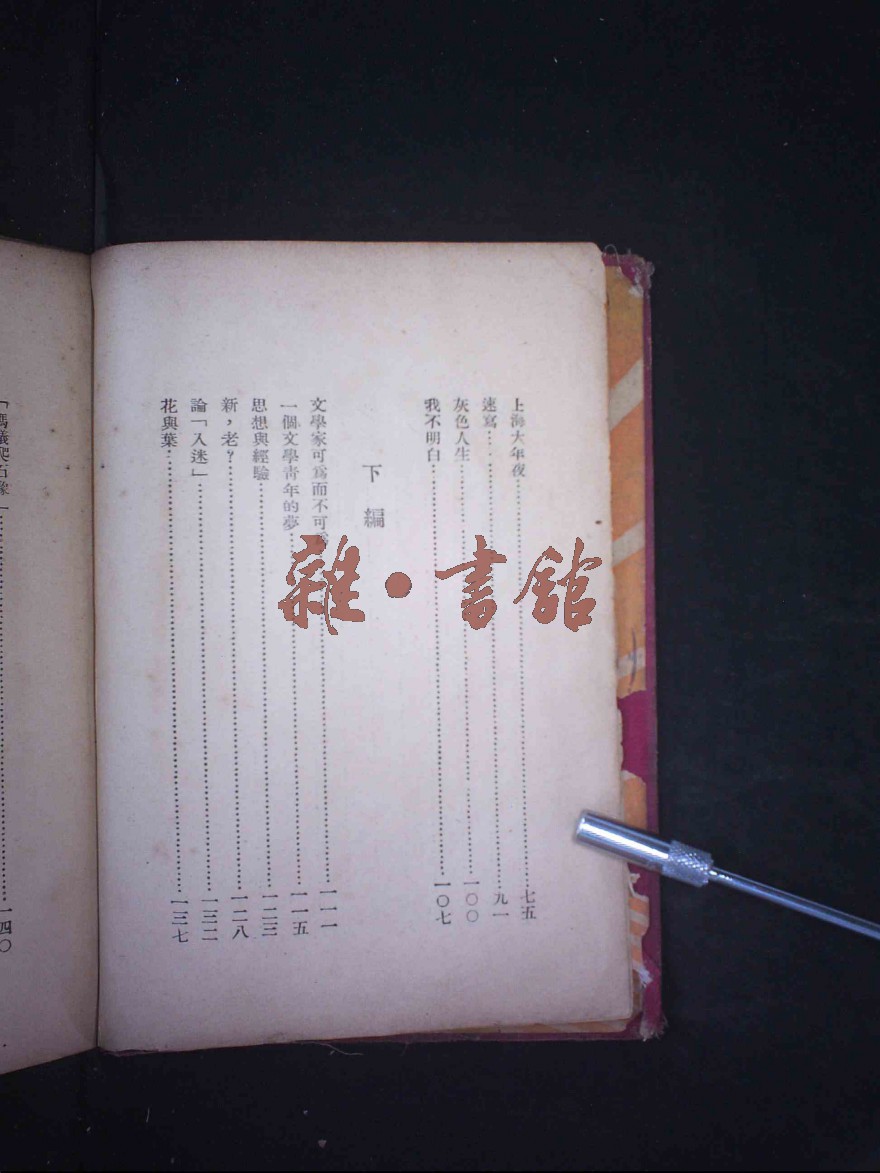 上海大年夜……七五
速寫……九一
灰色人生……一〇〇
我不明白……一〇七
下編
文學家可為而不可為……一一一
一個文學青年的夢……一一五
思想與經驗……一二三
新，老？……一二八
論「入迷」……一三二
花與葉……一三七
「螞蟻爬石像」……一四〇
雜·書館